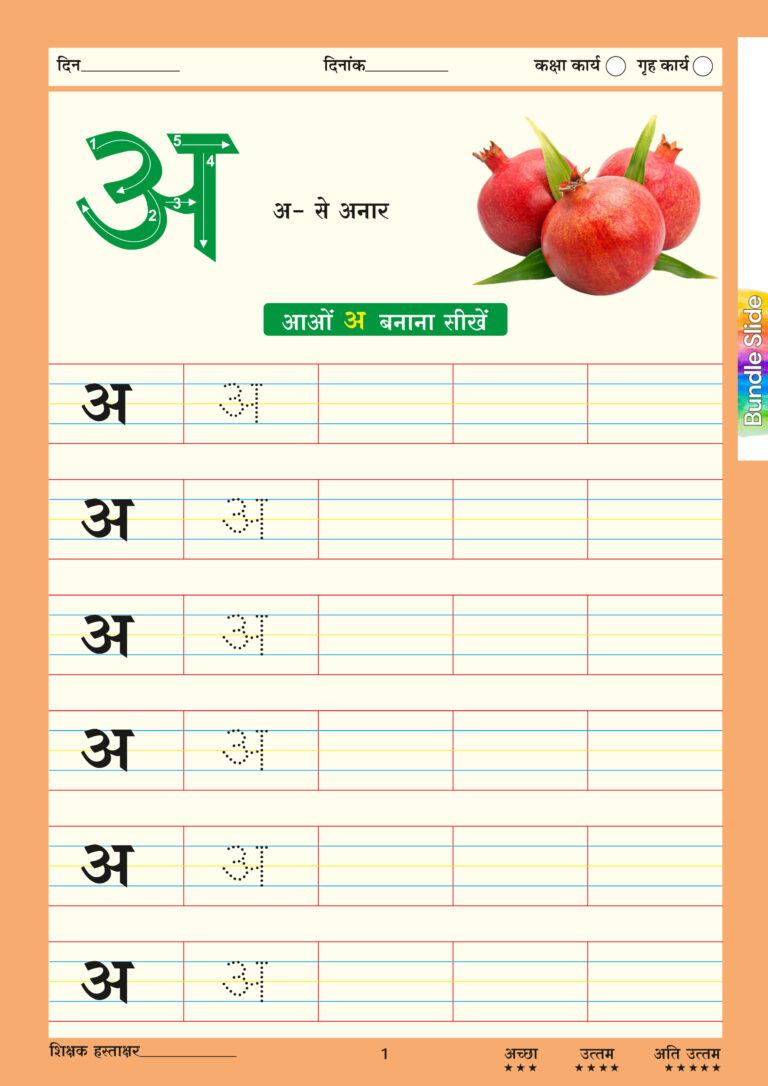 दिन__________ दिनांक__________ कक्षा कार्य गृह कार्य
1 5 4 अ 3 2
अ- से अनार
आओं अ बनाना सीखें
Bundle Slide
अ अ
अ अ
अ अ
अ अ
अ अ
अ अ
शिक्षक हस्ताक्षर__________ 1 अच्छा उत्तम अति उत्तम
★★★ ★★★★ ★★★★★